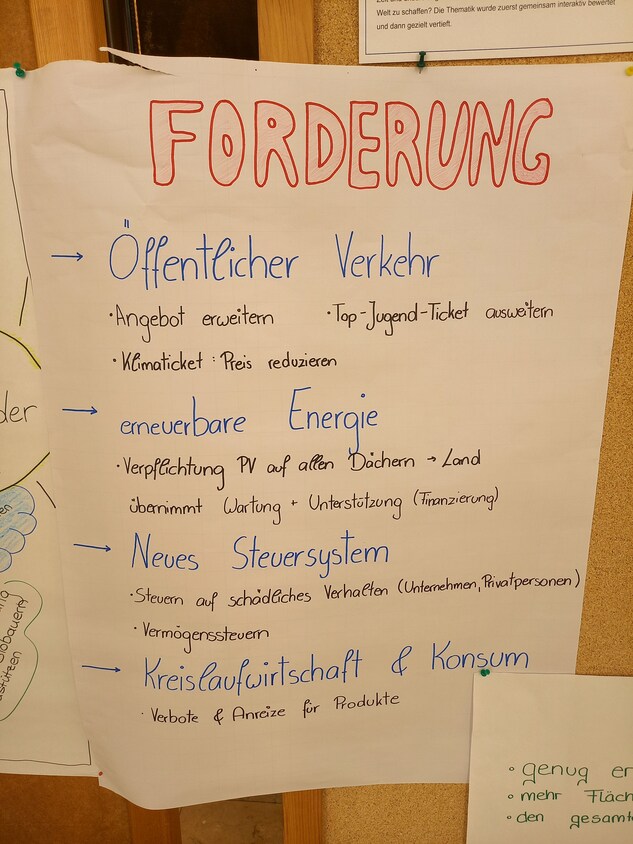 Welt zu schaffen? Die Thematik wurde zuerst gemeinsam interaktiv bewertet
und dann gezielt vertieft.
FORDERUNG
→ Öffentlicher Verkehr
· Angebot erweitern · Top-Jugend-Ticket ausweitern
· Klimaticket : Preis reduzieren
der
→ erneuerbare Energie
· Verpflichtung PV auf allen Dächern → Land
übernimmt Wartung + Unterstützung (Finanzierung)
→ Neues Steuersystem
· Steuern auf schädliches Verhalten (Unternehmen, Privatpersonen)
· Vermögenssteuern
→ Kreislaufwirtschaft & Konsum
· Verbote & Anreize für Produkte
° genug er
° mehr Fläch
° den gesamt